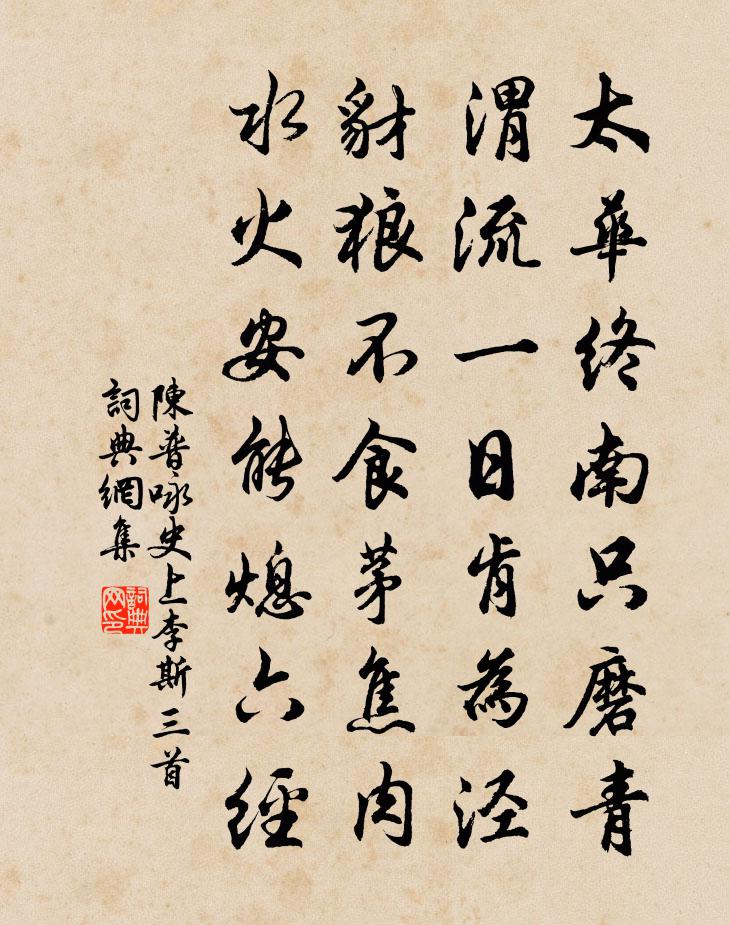 太華終南只磨青
渭流一日肯為泾
豺狼不食茅焦肉
水火安能熄六經
陳普咏史上李斯三首
詞典網集
詞典网印